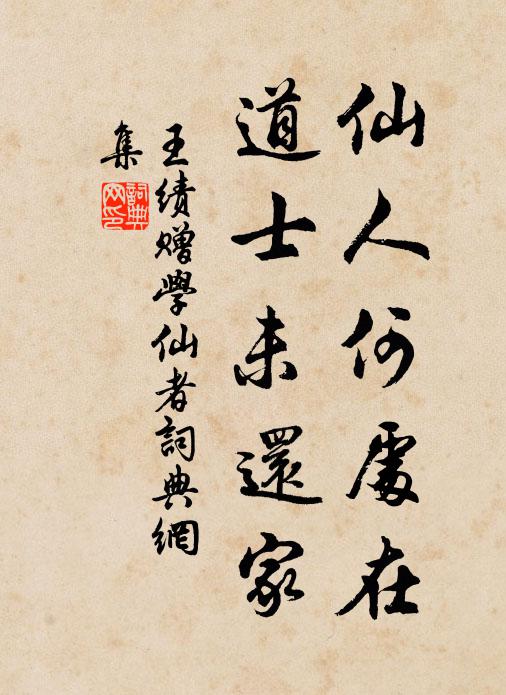 仙人何處在
道士未還家
王績贈學仙者詞典網
集
詞典網印